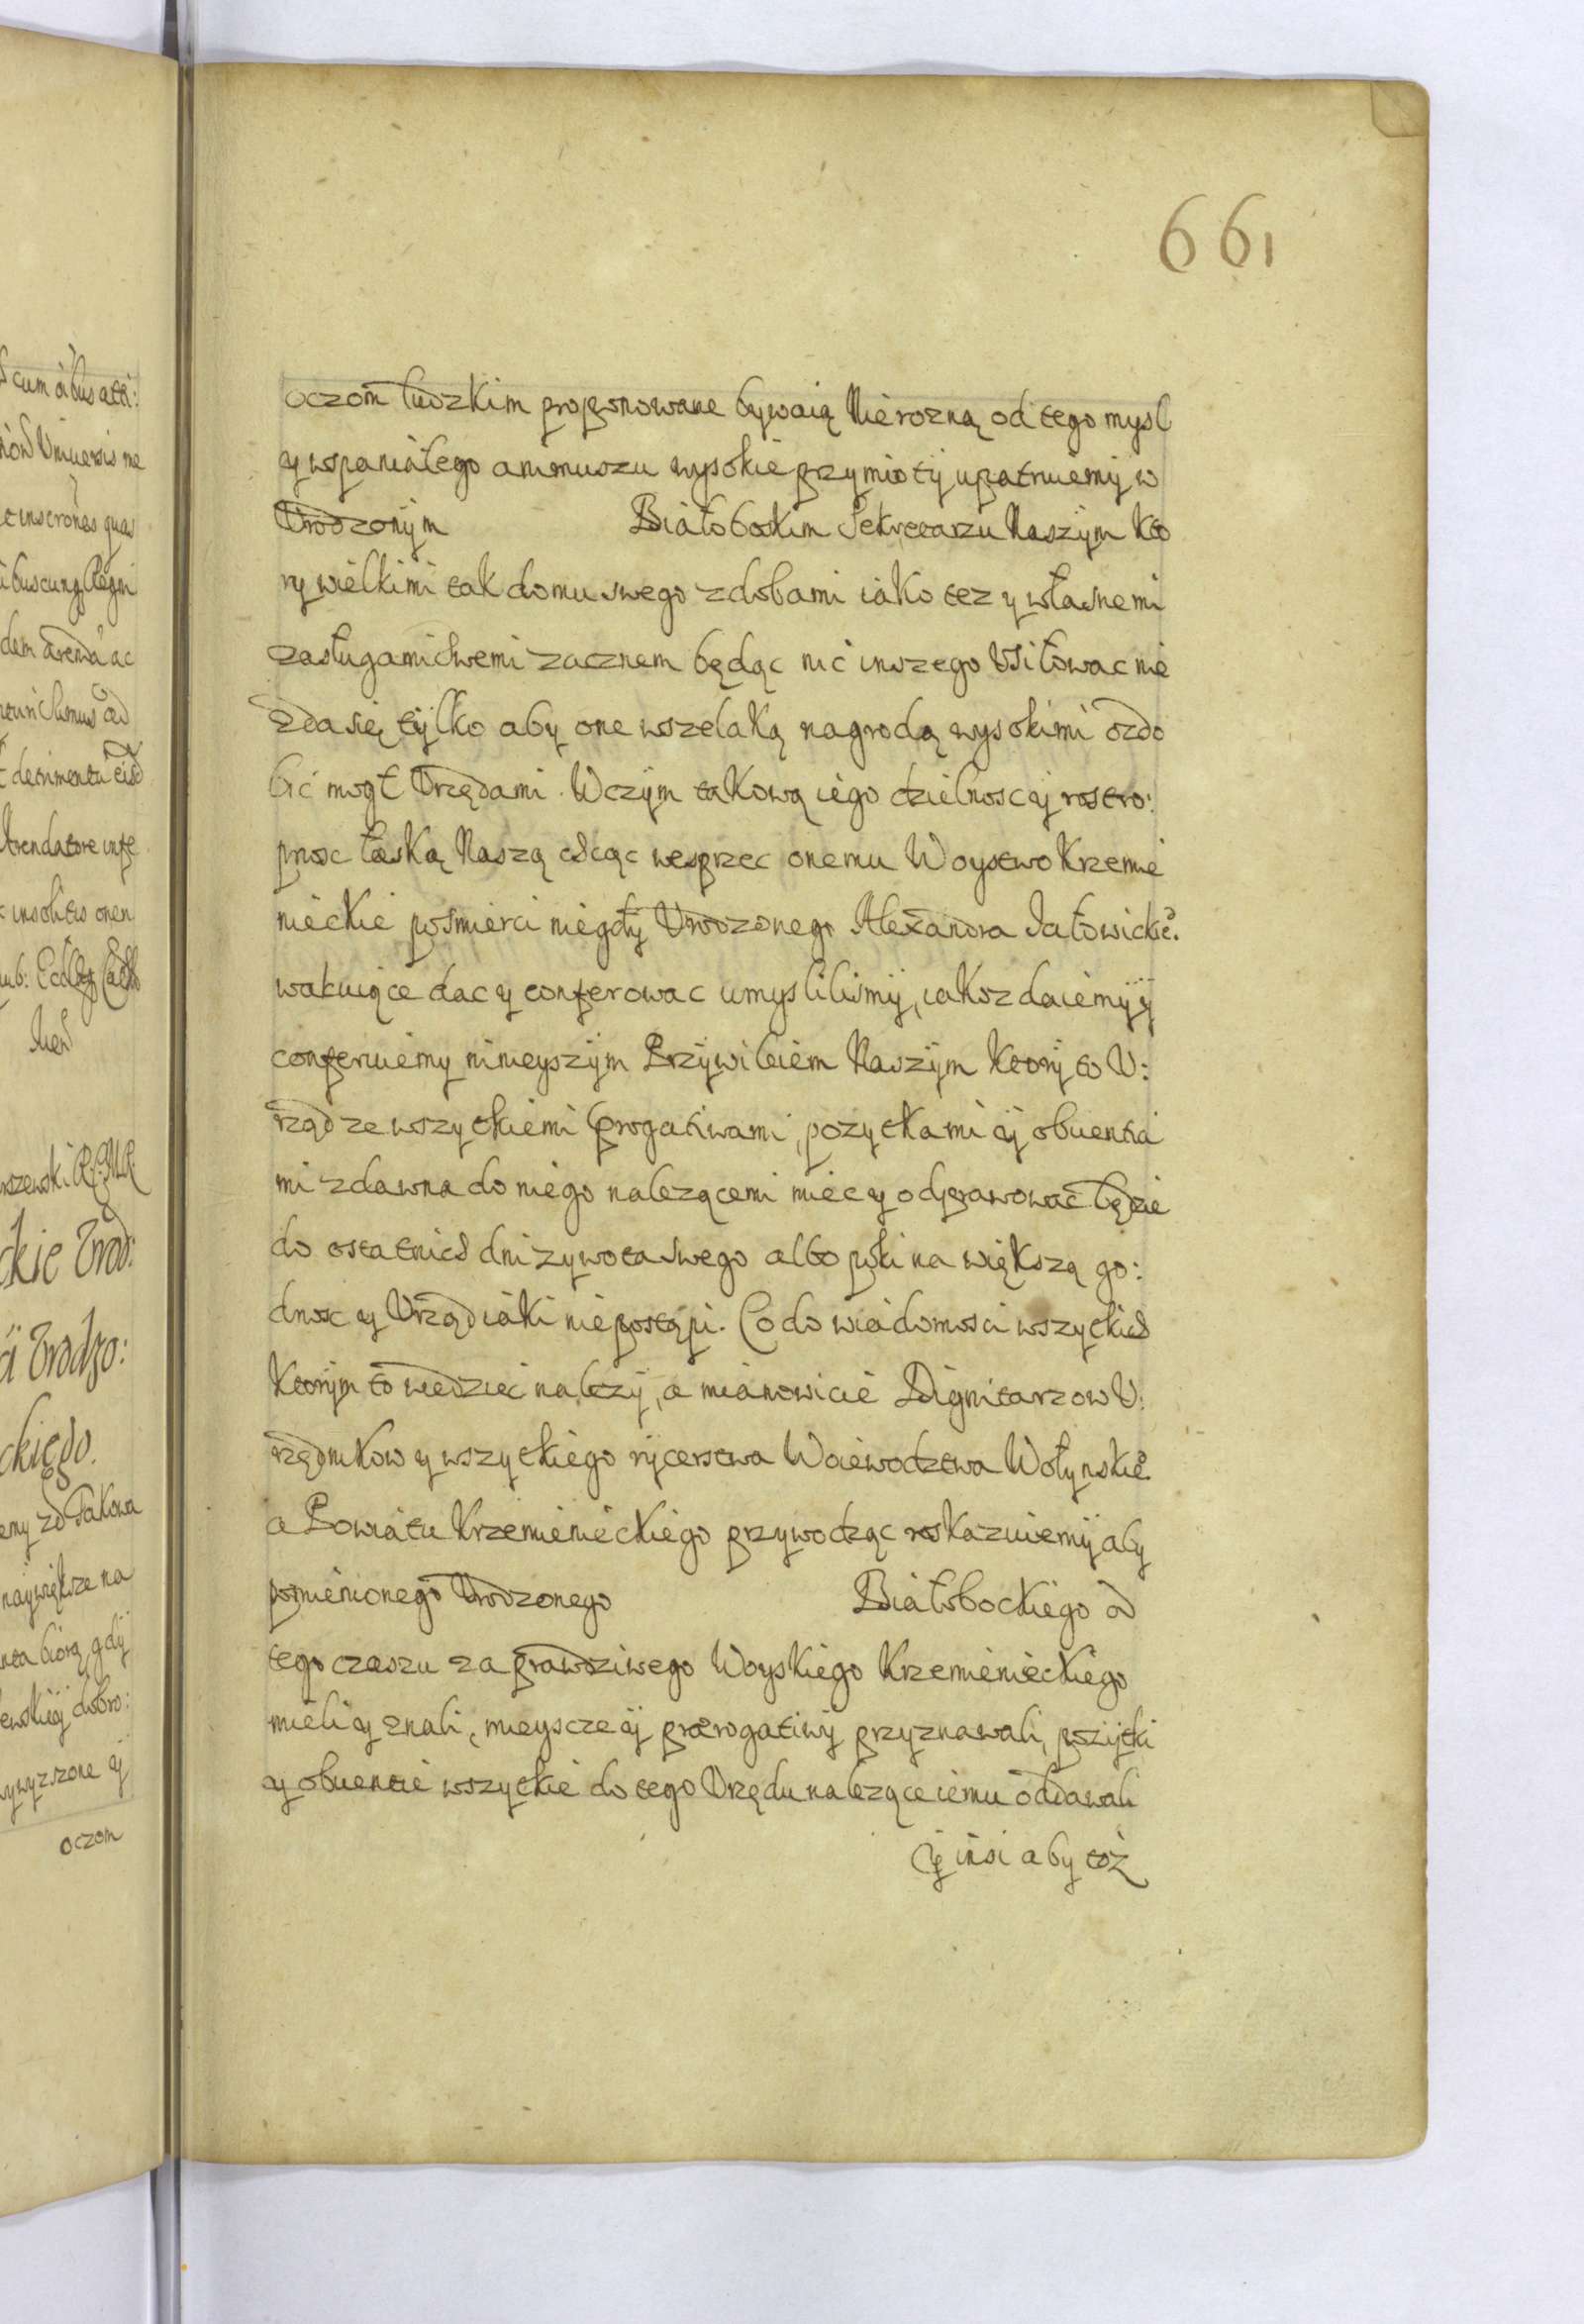 661
oczom ludzkim proponowane bywaią Nierozną od tego mysl
y wspaniałego animuszu wysokie przymioty upatruiemy w
Urodzonym Białobockim Sekretarzu Naszym Kto
ry wielkimi tak domu swego zdobami iako tez y własnemi
zasługami Swemi zacznem będąc nic inszego Usiłowac nie
zda się tylko aby one wszelaką nagrodą wysokimi ozdo
bić mogł Urzędami. W czym takową iego dzielnosc y rostro:
pnosc łaską Naszą chcąc wesprzec onemu Woystwo Krzemie
nieckie po smierci niegdy Urodzonego Alexandra Jałowickie°.
wakuiące dac y conferowac umysliliśmy, iakosz daiemy y
conferuiemy ninieyszym Przywileiem Naszym Ktory to U:
rząd ze wszytkiemi progatiwami, pozytkami y obuentia
mi zdawna do niego nalezącemi miec y odprawować będzie
do ostatnich dni zywota swego albo poki na większą go:
dnosc y Urząd iaki niepostąpi. Co do wiadomosci wszytkich
Ktorym to wiedziec nalezy, a mianowicie Dignitarzow U:
rzędnikow y wszytkiego rycerstwa Woiewodztwa Wołynskie°
a Powiatu Krzemienieckiego przywodząc roskazuiemy aby
pomienionego Urodzonego Białobockiego od
tego czaszu za prawdziwego Woyskiego Krzemienieckiego
mieli y znali, mieyscze y prærogatiwy przyznawali, pozytki
y obuentie wszytkie do tego Urzędu nalezące iemu oddawali
y insi aby toż
oczom